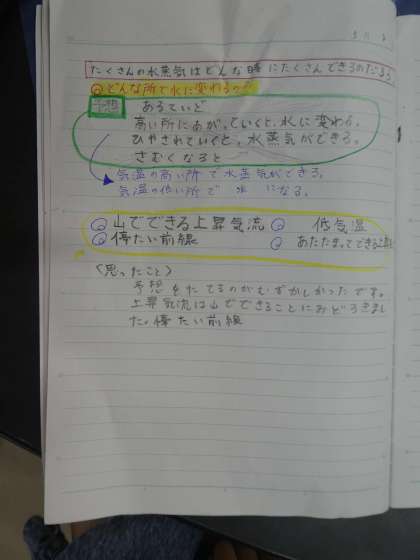 たくさんの水蒸気はどんな時にたくさんできるのだろう
どんな所で水に変わるのか
予想 あるていど
高い所にあがっていくと、水に変わる。
ひやされていくと、水蒸気ができる。
さむくなると
気温の高い所で水蒸気ができる。
気温の低い所で 水 になる。
山でできる上昇気流 低気温
停たい前線 あたたまってできる上昇
〈思ったこと〉
予想をたてるのがむずかしかったです。
上昇気流は山でできることにおどろきまし
た。停たい前線